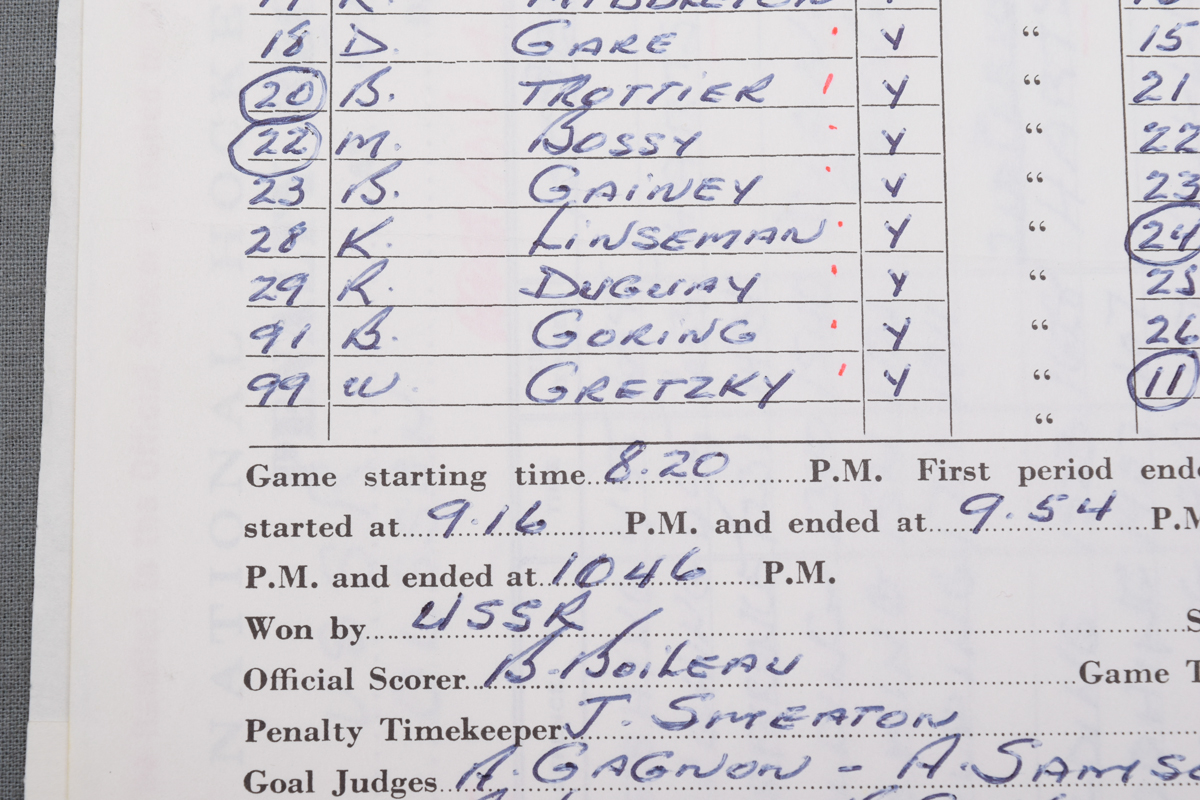 MIDDLETON
18 D. GARE Y “ 15
20 B. TROTTIER Y “ 21
22 M. BOSSY Y “ 22
23 B. GAINEY Y “ 23
28 K. LINSEMAN Y “ 24
29 R. DUGUAY Y “ 25
91 B. GORING Y “ 26
99 W. GRETZKY Y “ 11
“
Game starting time 8.20 P.M. First period ende
started at 9.16 P.M. and ended at 9.54 P.M
P.M. and ended at 1046 P.M.
Won by USSR S
Official Scorer B. BOILEAU Game T
Penalty Timekeeper J. SMEATON
Goal Judges A. GAGNON - A. SAMSO